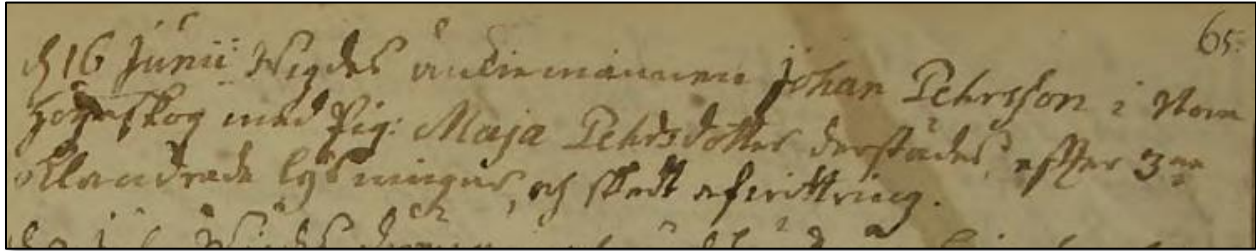 65.
d 16 Junii Wigdes änkiemannen Johan Pehrsson i Norra
Högaskog med Pig: Maja Pehrsdotter derstädes, efter 3ne
oklandrade lysningar, och skedt afwittring.